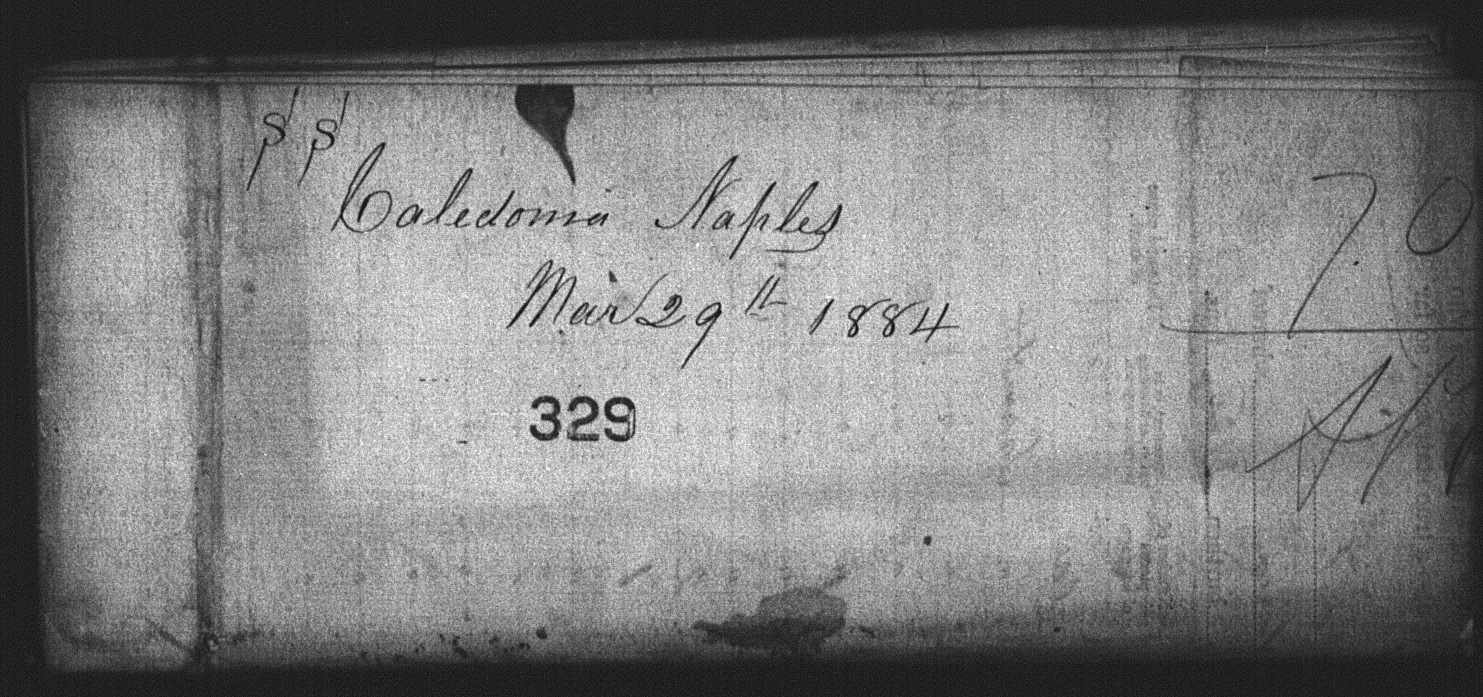 S/ S/
Caledonia Naples
Mar 29th 1884
329
70